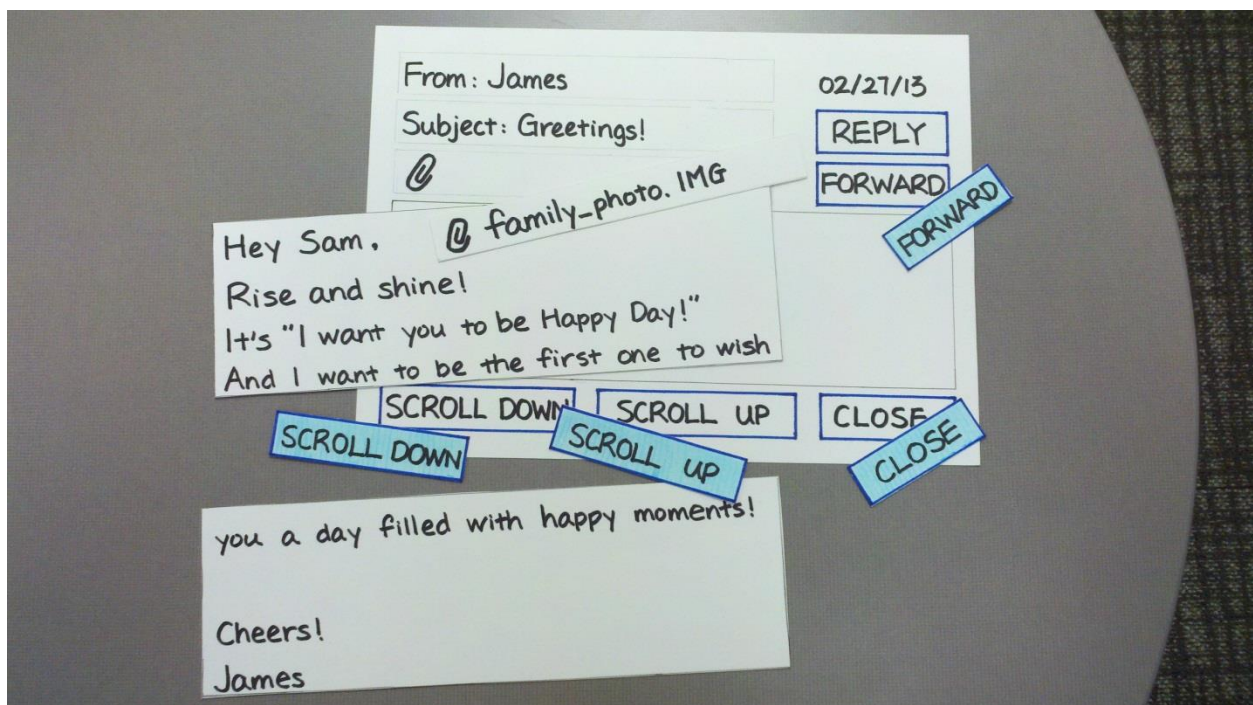 From: James
02/27/13
Subject: Greetings!
REPLY
FORWARD
FORWARD
family_photo. IMG
Hey Sam,
Rise and shine!
It's "I want you to be Happy Day!"
And I want to be the first one to wish
SCROLL DOWN
SCROLL UP
CLOSE
SCROLL DOWN
SCROLL UP
CLOSE
you a day filled with happy moments!
Cheers!
James